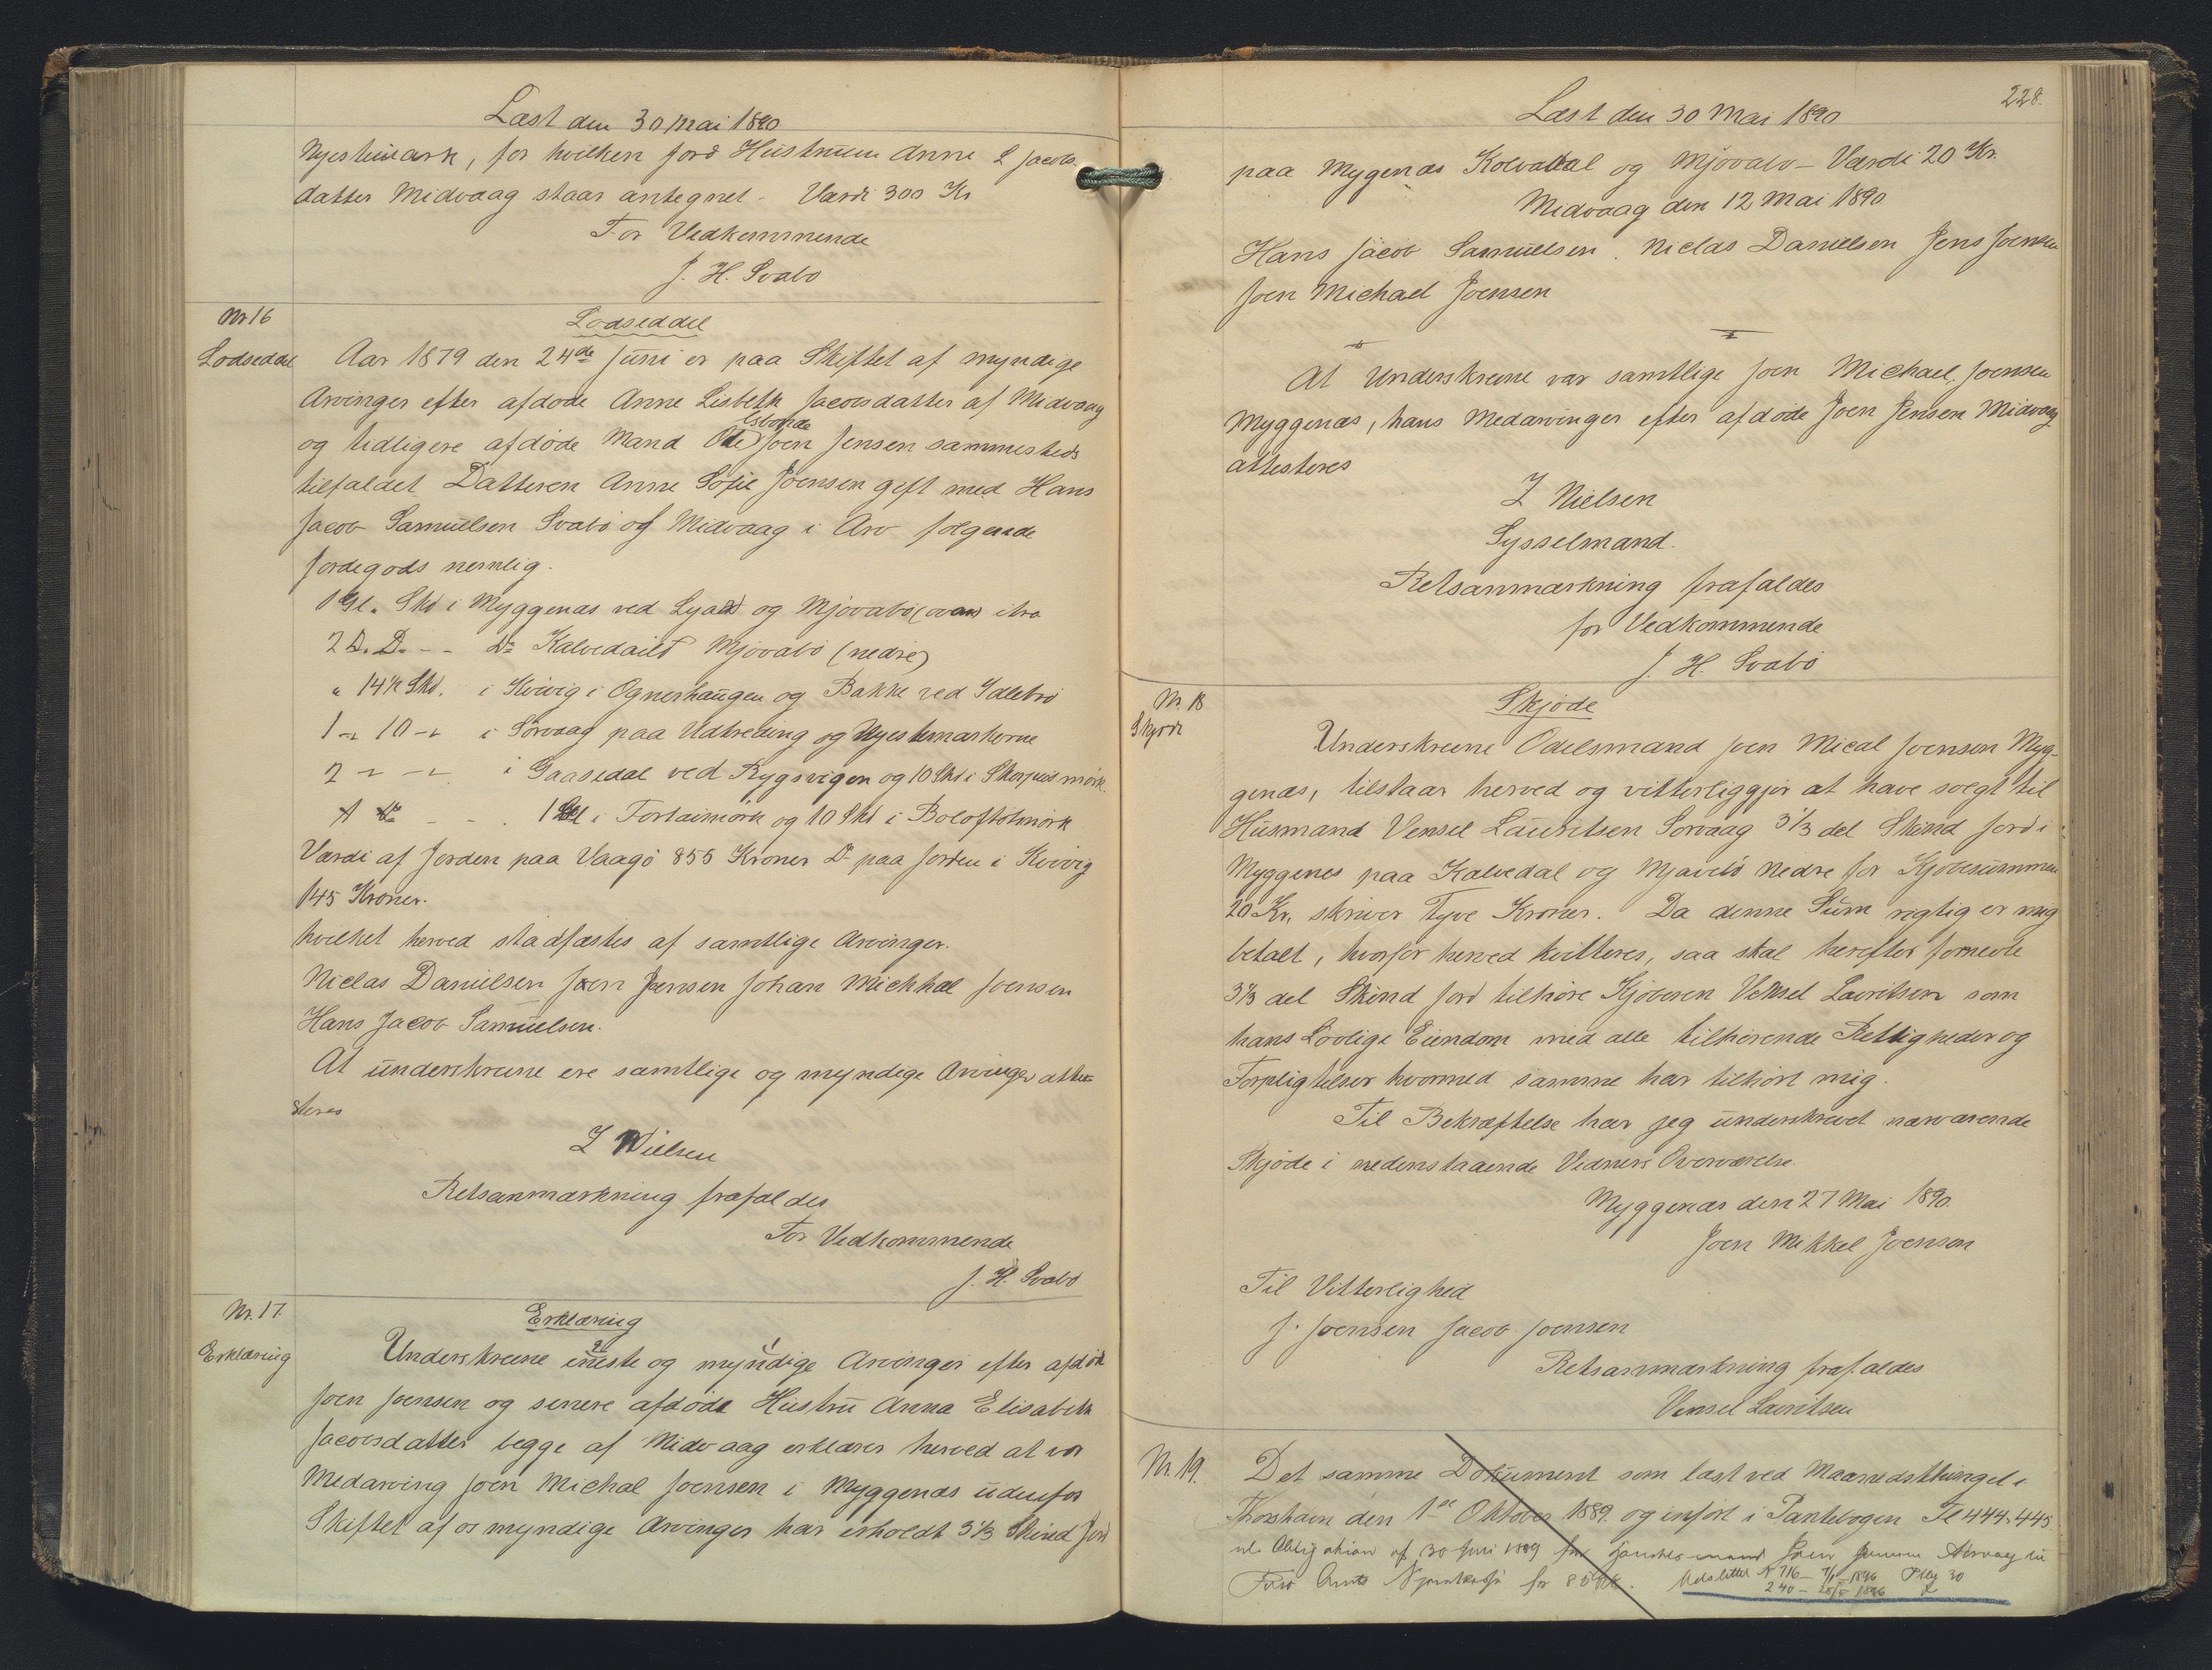 Læst den 30 Mai 1890
Nyestemark, for hvilken Jord Hustruen Anne L Jacobs
datter Midvaag staar antegnet - Værdi 300 Kr
For Vedkommende
J. H. Svabo
Nr 16
Lodseddel
Lodseddel
Aar 1879 den 24de Juni er paa Skiftet af myndige
Arvinger efter afdøde Anne Lisbeth Jacobsdatter af Midvaag
og tidligere afdøde Mand Odelsbonde Joen Jensen sammesteds
tilfaldet Datteren Anne Sofie Joensen gift med Hans
Jacob Samuelsen Svabø af Midvaag i Arv følgende
Jordegods nemlig.
1 Gl. Skd i Myggenæs ved Lyad og Mjovabø (ovan) itra
2 D. D. - - Do Kalvedailt Mjovabø (nedre)
" 14½ Skd. i Kvivig i Ognerhaugen og Bakke ved Ydlebrø
1 - 10 - i Sørvaag paa Udtreding og Nyestemarkerne
2 - - i Gaasedal ved Rygsvigen og 10 Skd i Skorpeds mørk.
1 Gl i Fortaimørk og 10 Skd i Boloftstmørk
Værdi af Jorden paa Vaagø 855 Kroner Do paa Jorden i Kvivig
145 Kroner.
hvilket herved stadfæstes af samtlige Arvinger.
Niclas Danielsen Joen Joensen Johan Michhal Joensen
Hans Jacob Samuelsen.
At underskrevne ere samtlige og myndige Arvinger atte-
steres
Z Nielsen
Retsanmærkning frafaldes
For Vedkommende
J. H. Svabø
Nr. 17.
Erklæring
Erklæring
Underskrevne eneste og myndige Arvinger efter afdøde
Joen Joensen og senere afdøde Hustru Anna Elisabeth
Jacobsdatter begge af Midvaag erklærer herved at vor
Medarving Joen Michal Joensen i Myggenæs udenfor
Skiftet af os myndige Arvinger har erholdt 3⅓ Skind Jord
228.
Læst den 30 Mai 1890
paa Mygenæs Kolvadal og Mjovabø - Værdi 20 Kr.
Midvaag den 12 Mai 1890
Hans Jacob Samuelsen. Niclas Danielsen Jens Joensen
Joen Michael Joensen
At Underskrevne var samtlige Joen Michael Joensen
Myggenæs, hans Medarvinger efter afdøde Joen Jensen Midvaag
attesteres
Z Nielsen
Sysselmand.
Retsanmærkning frafaldes
for Vedkommende
J. H. Svabø
Nr. 18
Skjøde
Skjøde
Underskrevne Odelsmand Joen Mical Joensen Myg-
genæs, tilstaar herved og vitterliggjør at have solgt til
Husmand Vensel Lauritsen Sorvaag 3⅓ del Skind Jord i
Myggenes paa Kalvedal og Mjavebø nedre for Kjøbesummen
20 Kr. skriver Tyve Kroner. Da denne Sum rigtig er mig
betalt, hvorfor herved kvitteres, saa skal herefter fornevte
3⅓ del Skind Jord tilhøre Kjøberen Vensel Lauritsen som
hans Lovlige Eiendom med alle tilhørende Rettigheder og
Forpligtelser hvormed samme har tilhørt mig.
Til Bekræftelse har jeg underskrevet nærværende
Skjøde i nedenstaaende Vidners Overværelse.
Myggenæs den 27 Mai 1890.
Joen Mikkel Joensen
Til Vitterlighed
J. Joensen Jacob Joensen
Retsanmærkning frafaldes
Vensel Lauritsen
Nr. 19.
Det samme Dokument som læst ved Maanedsthinget i
Thorshavn den 1ste Oktober 1889 og indført i Pantebogen Fl 444-445
nl. Obligation af 30 Juni 1889 fra Joen Joensen til
Færø Amts for 850 Kr. Udslettet No 716 - 1896 30
240 - 1896